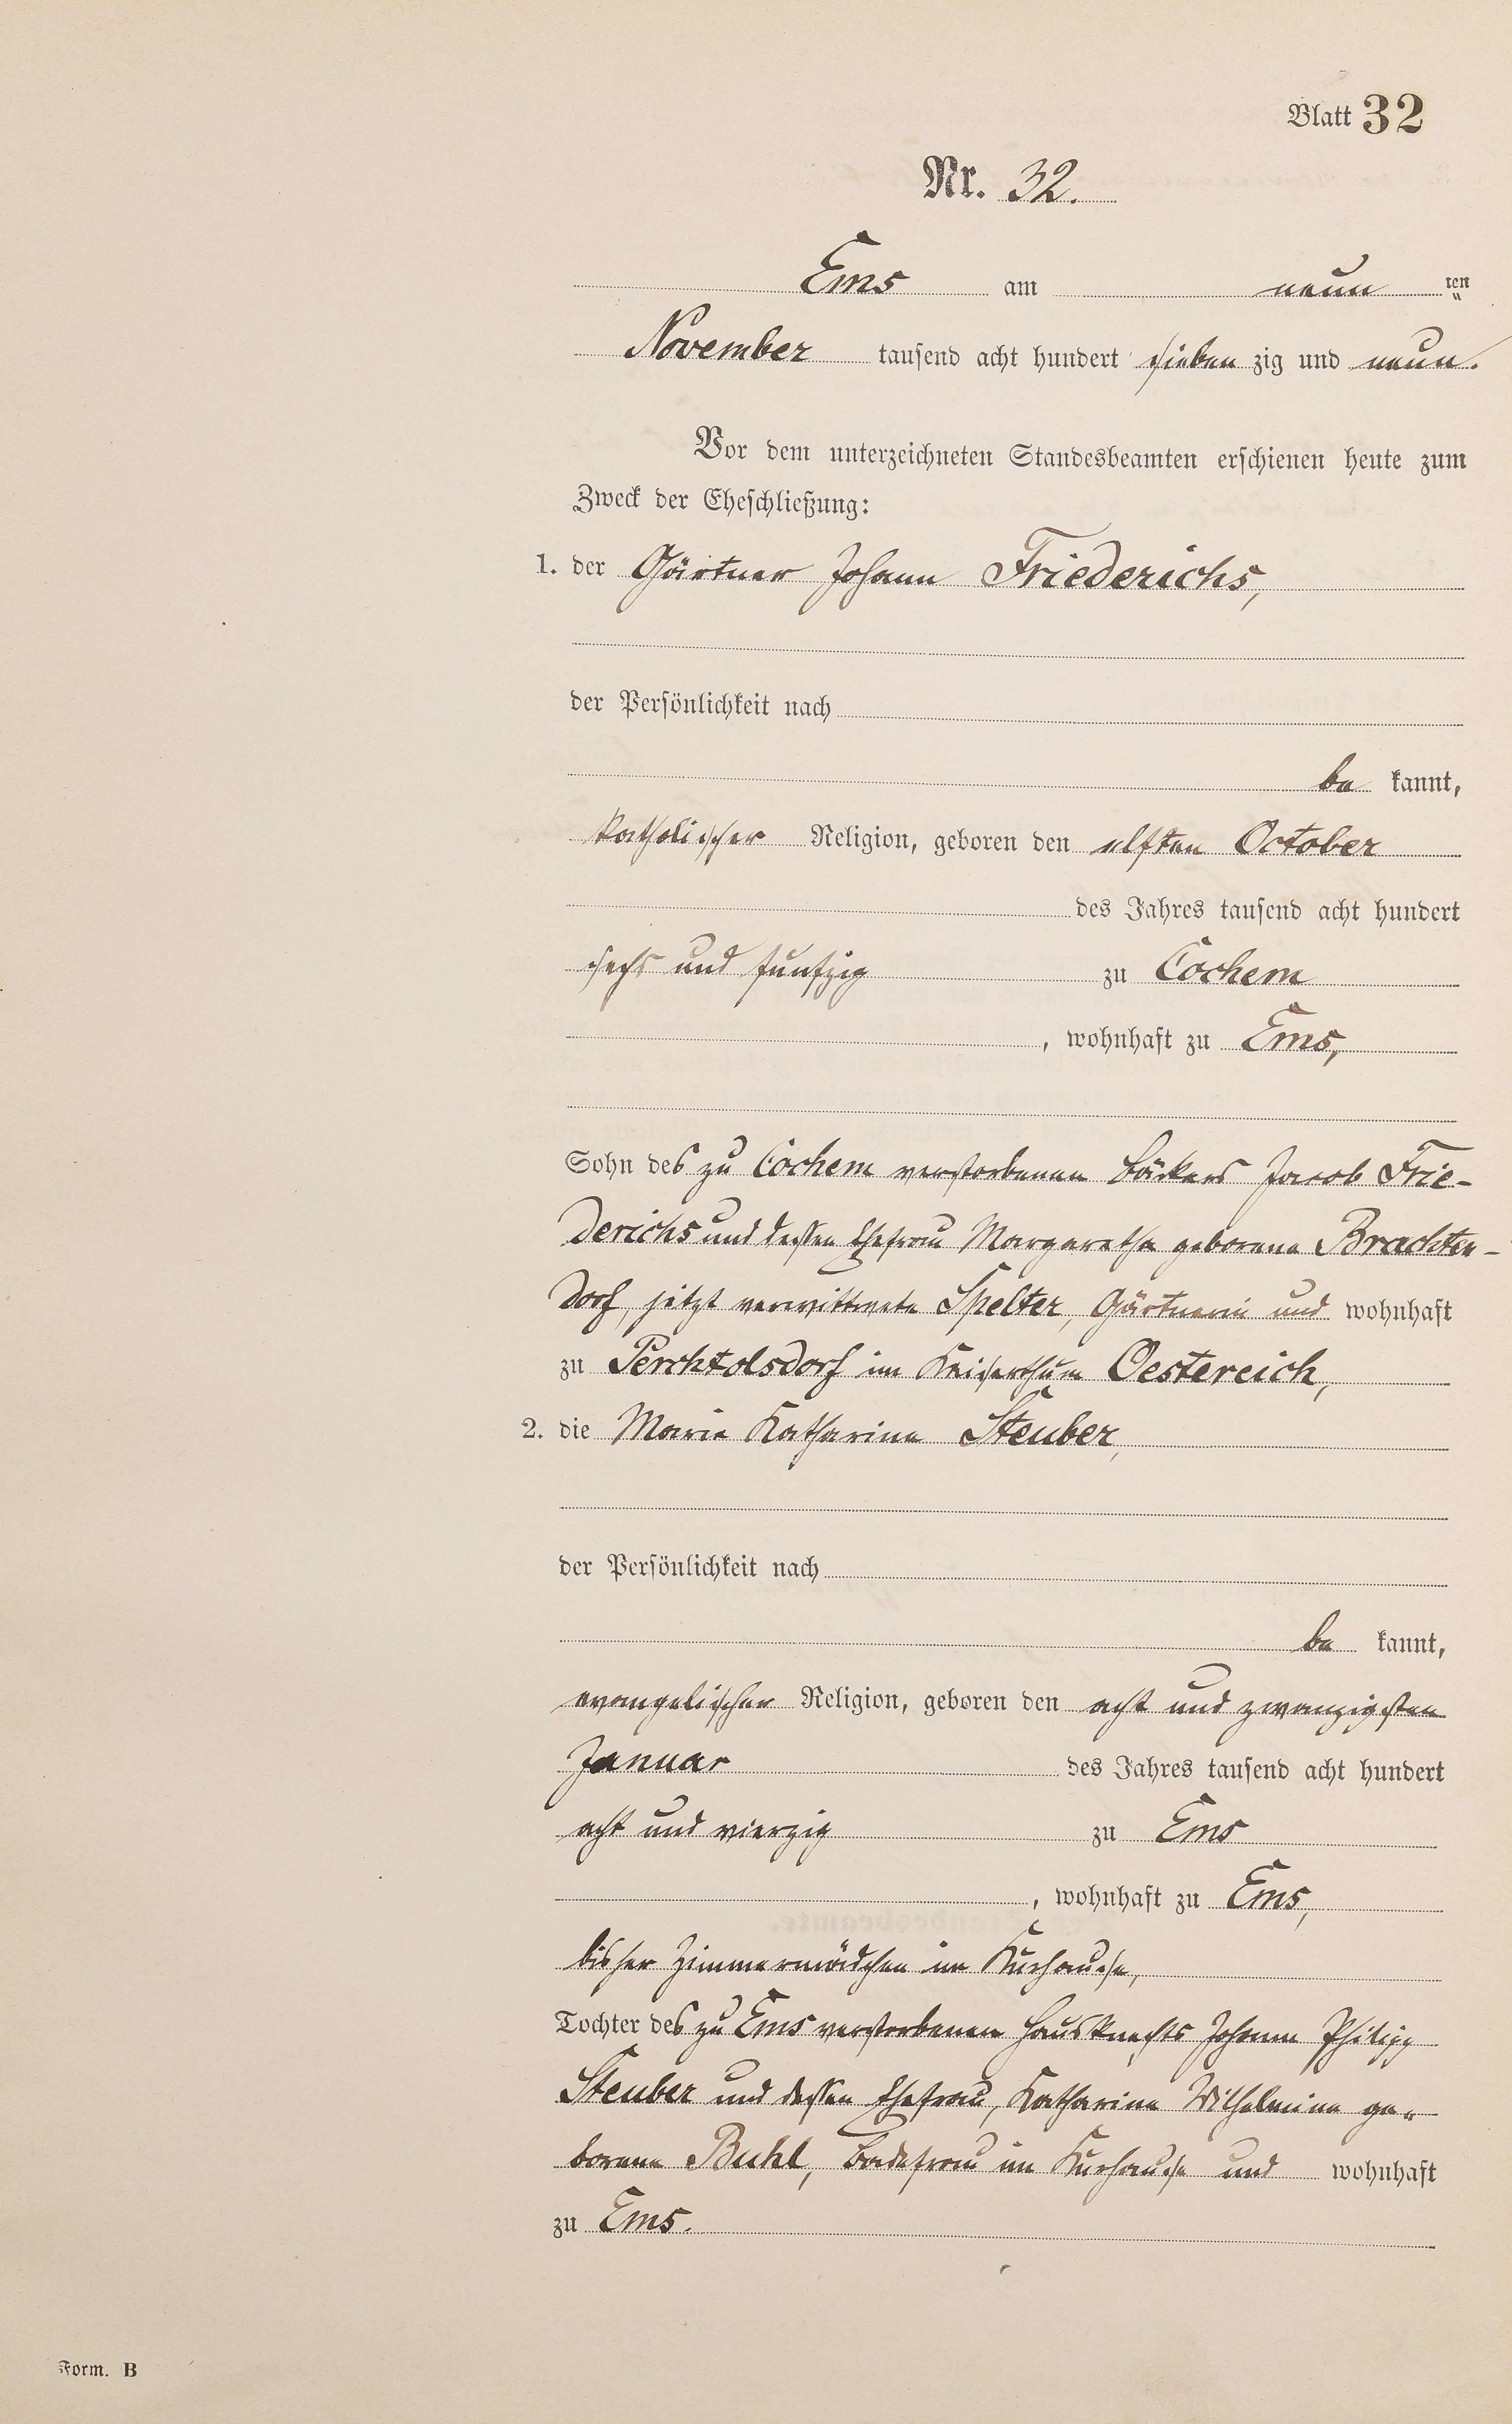 Blatt 32
Nr. 32.
Ems am neun ten
"
November tausend acht hundert sieben zig und neun.
Vor dem unterzeichneten Standesbeamten erschienen heute zum
Zweck der Eheschließung:
1. der Gärtner Johann Friederichs,
der Persönlichkeit nach
be kannt,
katholischer Religion, geboren den elften October
des Jahres tausend acht hundert
sechs und funfzig zu Cochem
, wohnhaft zu Ems,
Sohn des zu Cochem verstorbenen Bäckers Jacob Frie-
derichs und dessen Ehefrau Margaretha geborene Brachten-
dorf, jetzt verwittwete Spelter, Gärtnerin und wohnhaft
zu Perchtolsdorf im Kaiserthum Oestereich,
2. die Marie Katharina Steuber,
der Persönlichkeit nach
be kannt,
evangelischer Religion, geboren den acht und zwanzigsten
Januar des Jahres tausend acht hundert
acht und vierzig zu Ems
, wohnhaft zu Ems,
bisher Zimmermädchen im Kurhause,
Tochter des zu Ems verstorbenen Hausknechts Johann Philipp
Steuber und dessen Ehefrau, Katharina Wilhelmine ge„
borene Buhl, Badefrau im Kurhause und wohnhaft
zu Ems.
Form. B